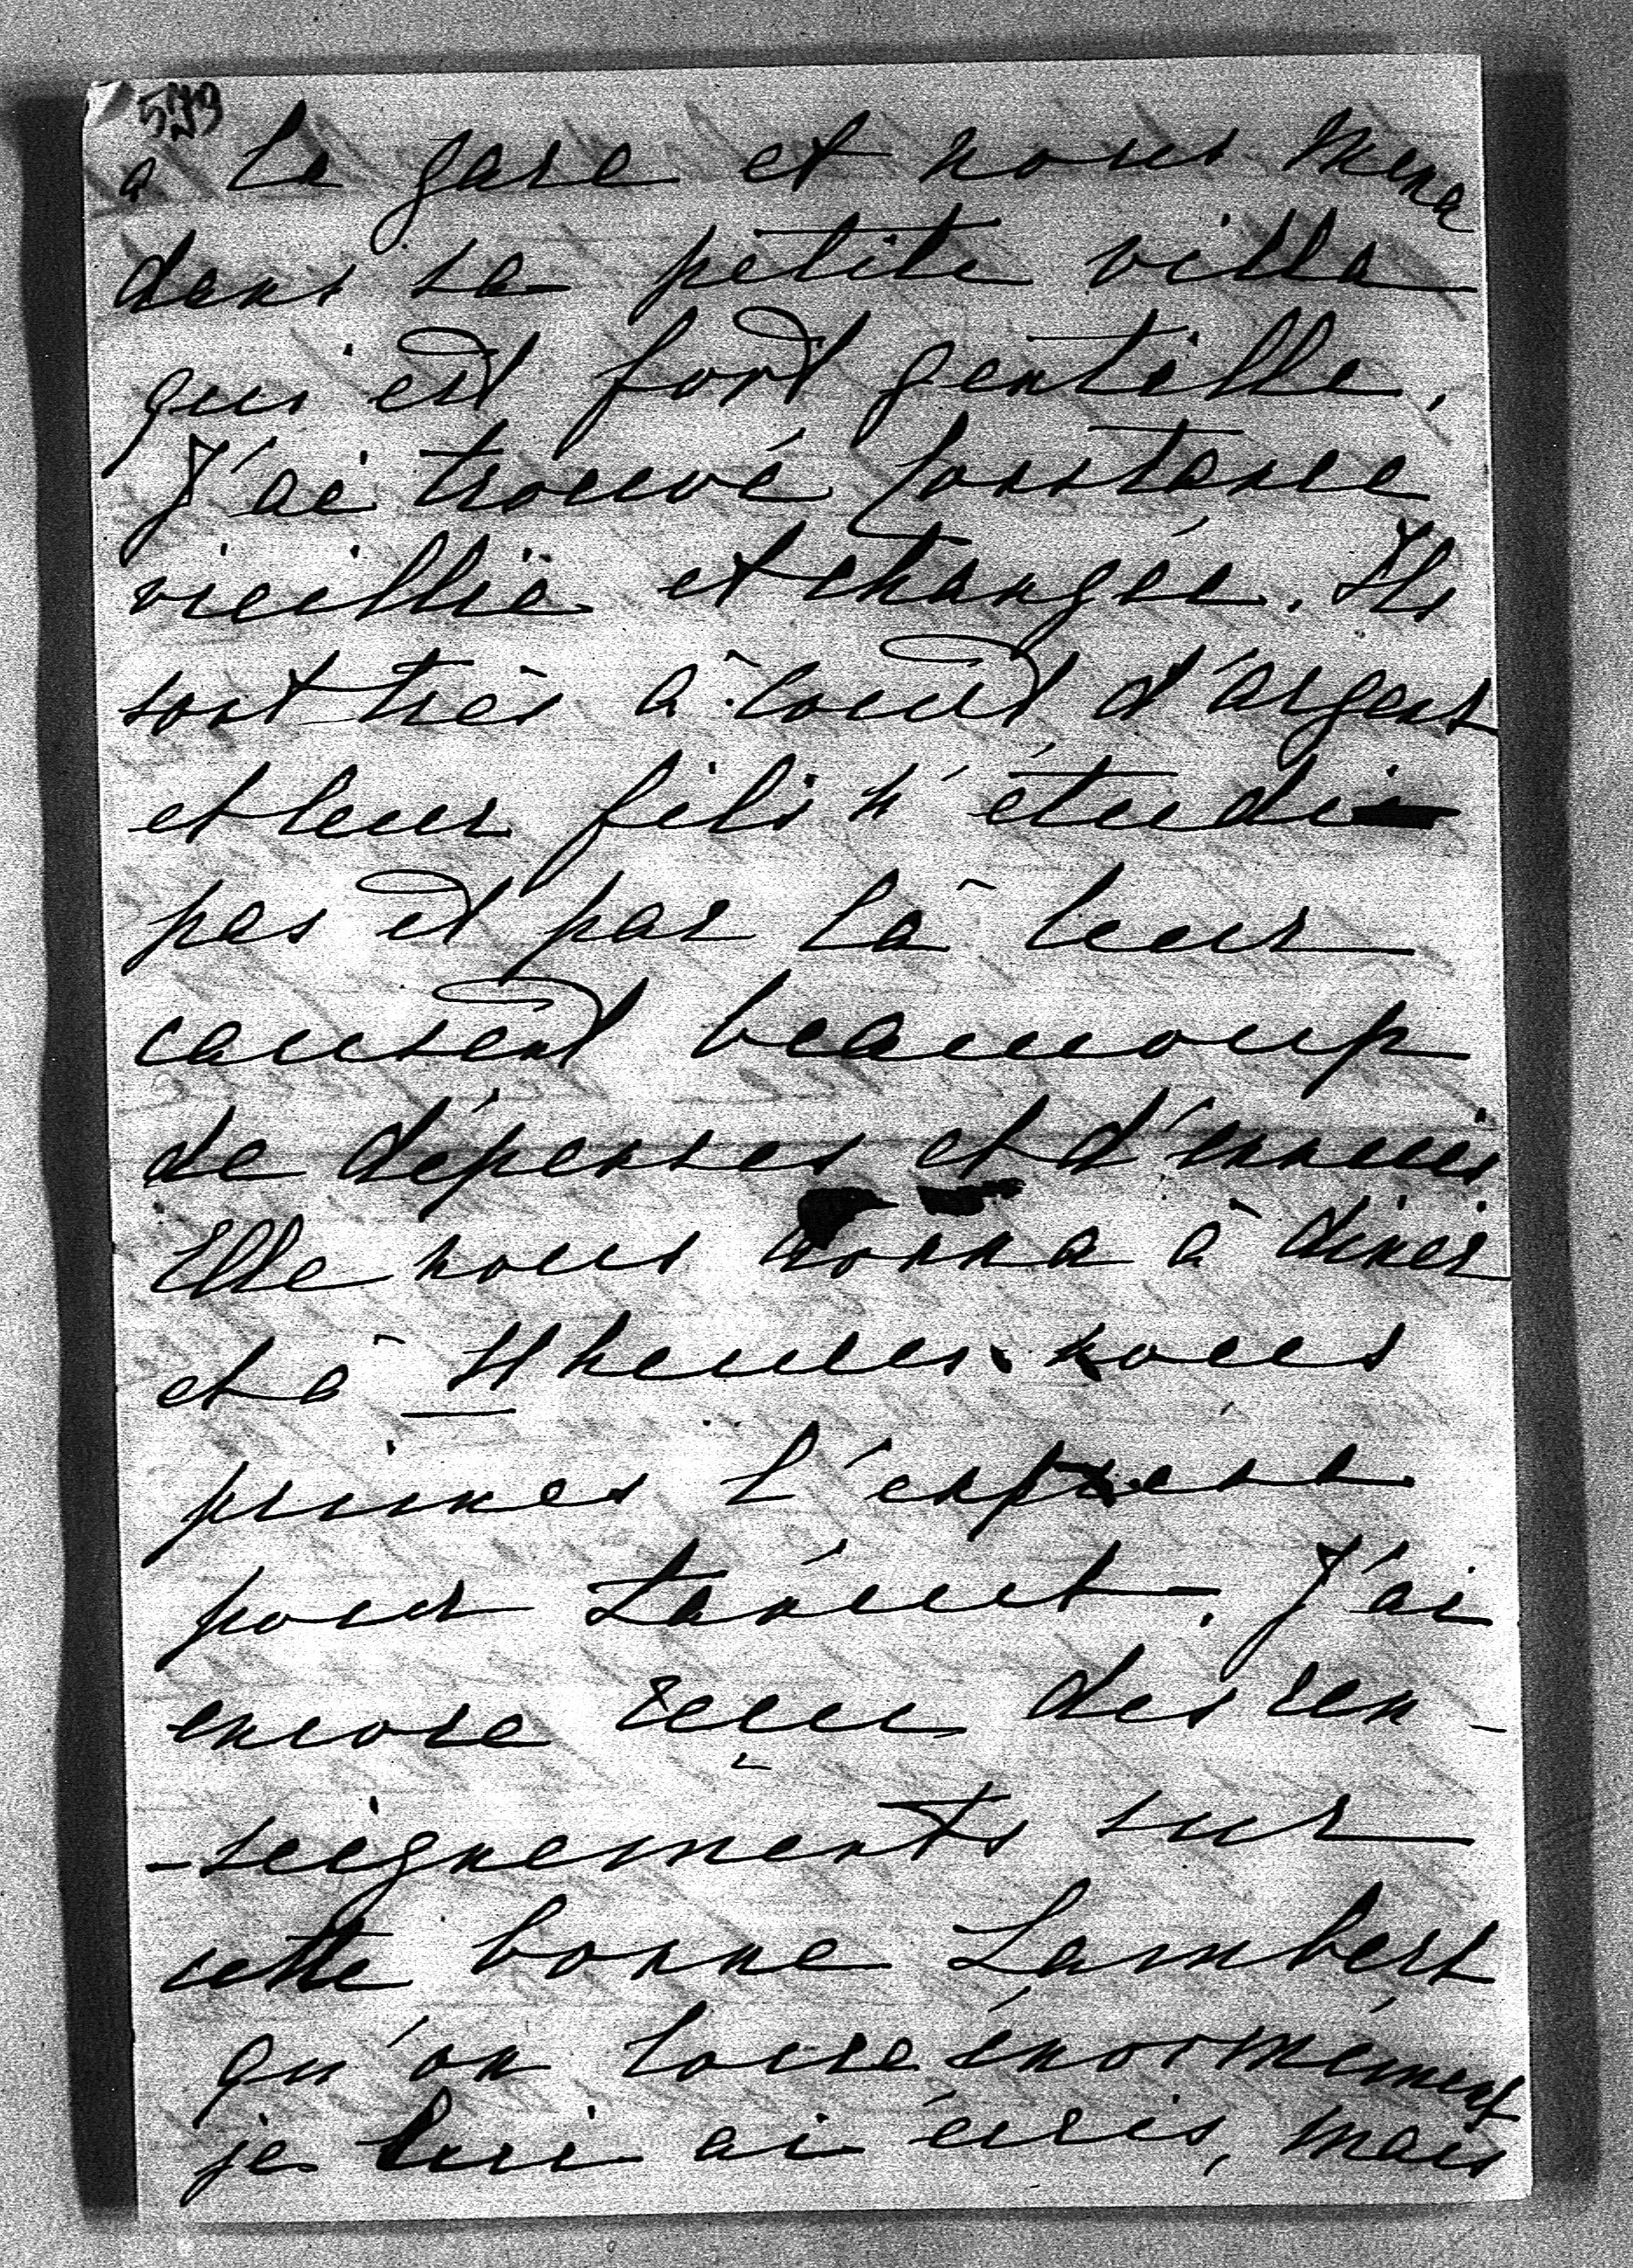 573
a la gare et nous mena
dans sa petite villa
qui est fort gentille.
J'ai trouvé Constance
vieillie et changée. Ils
sont très à court d'argent
et leur fils n'étudi
pas et par là leur
causent beaucoup
de dépenses et d'ennuis
Elle nous donna à diner
et à 4 heures nous
primes l'express
pour . J'ai
encore reçu des ren-
-seignements sur
cette bonne Lambert
qu'on loue énormément
je lui ai écris, mais